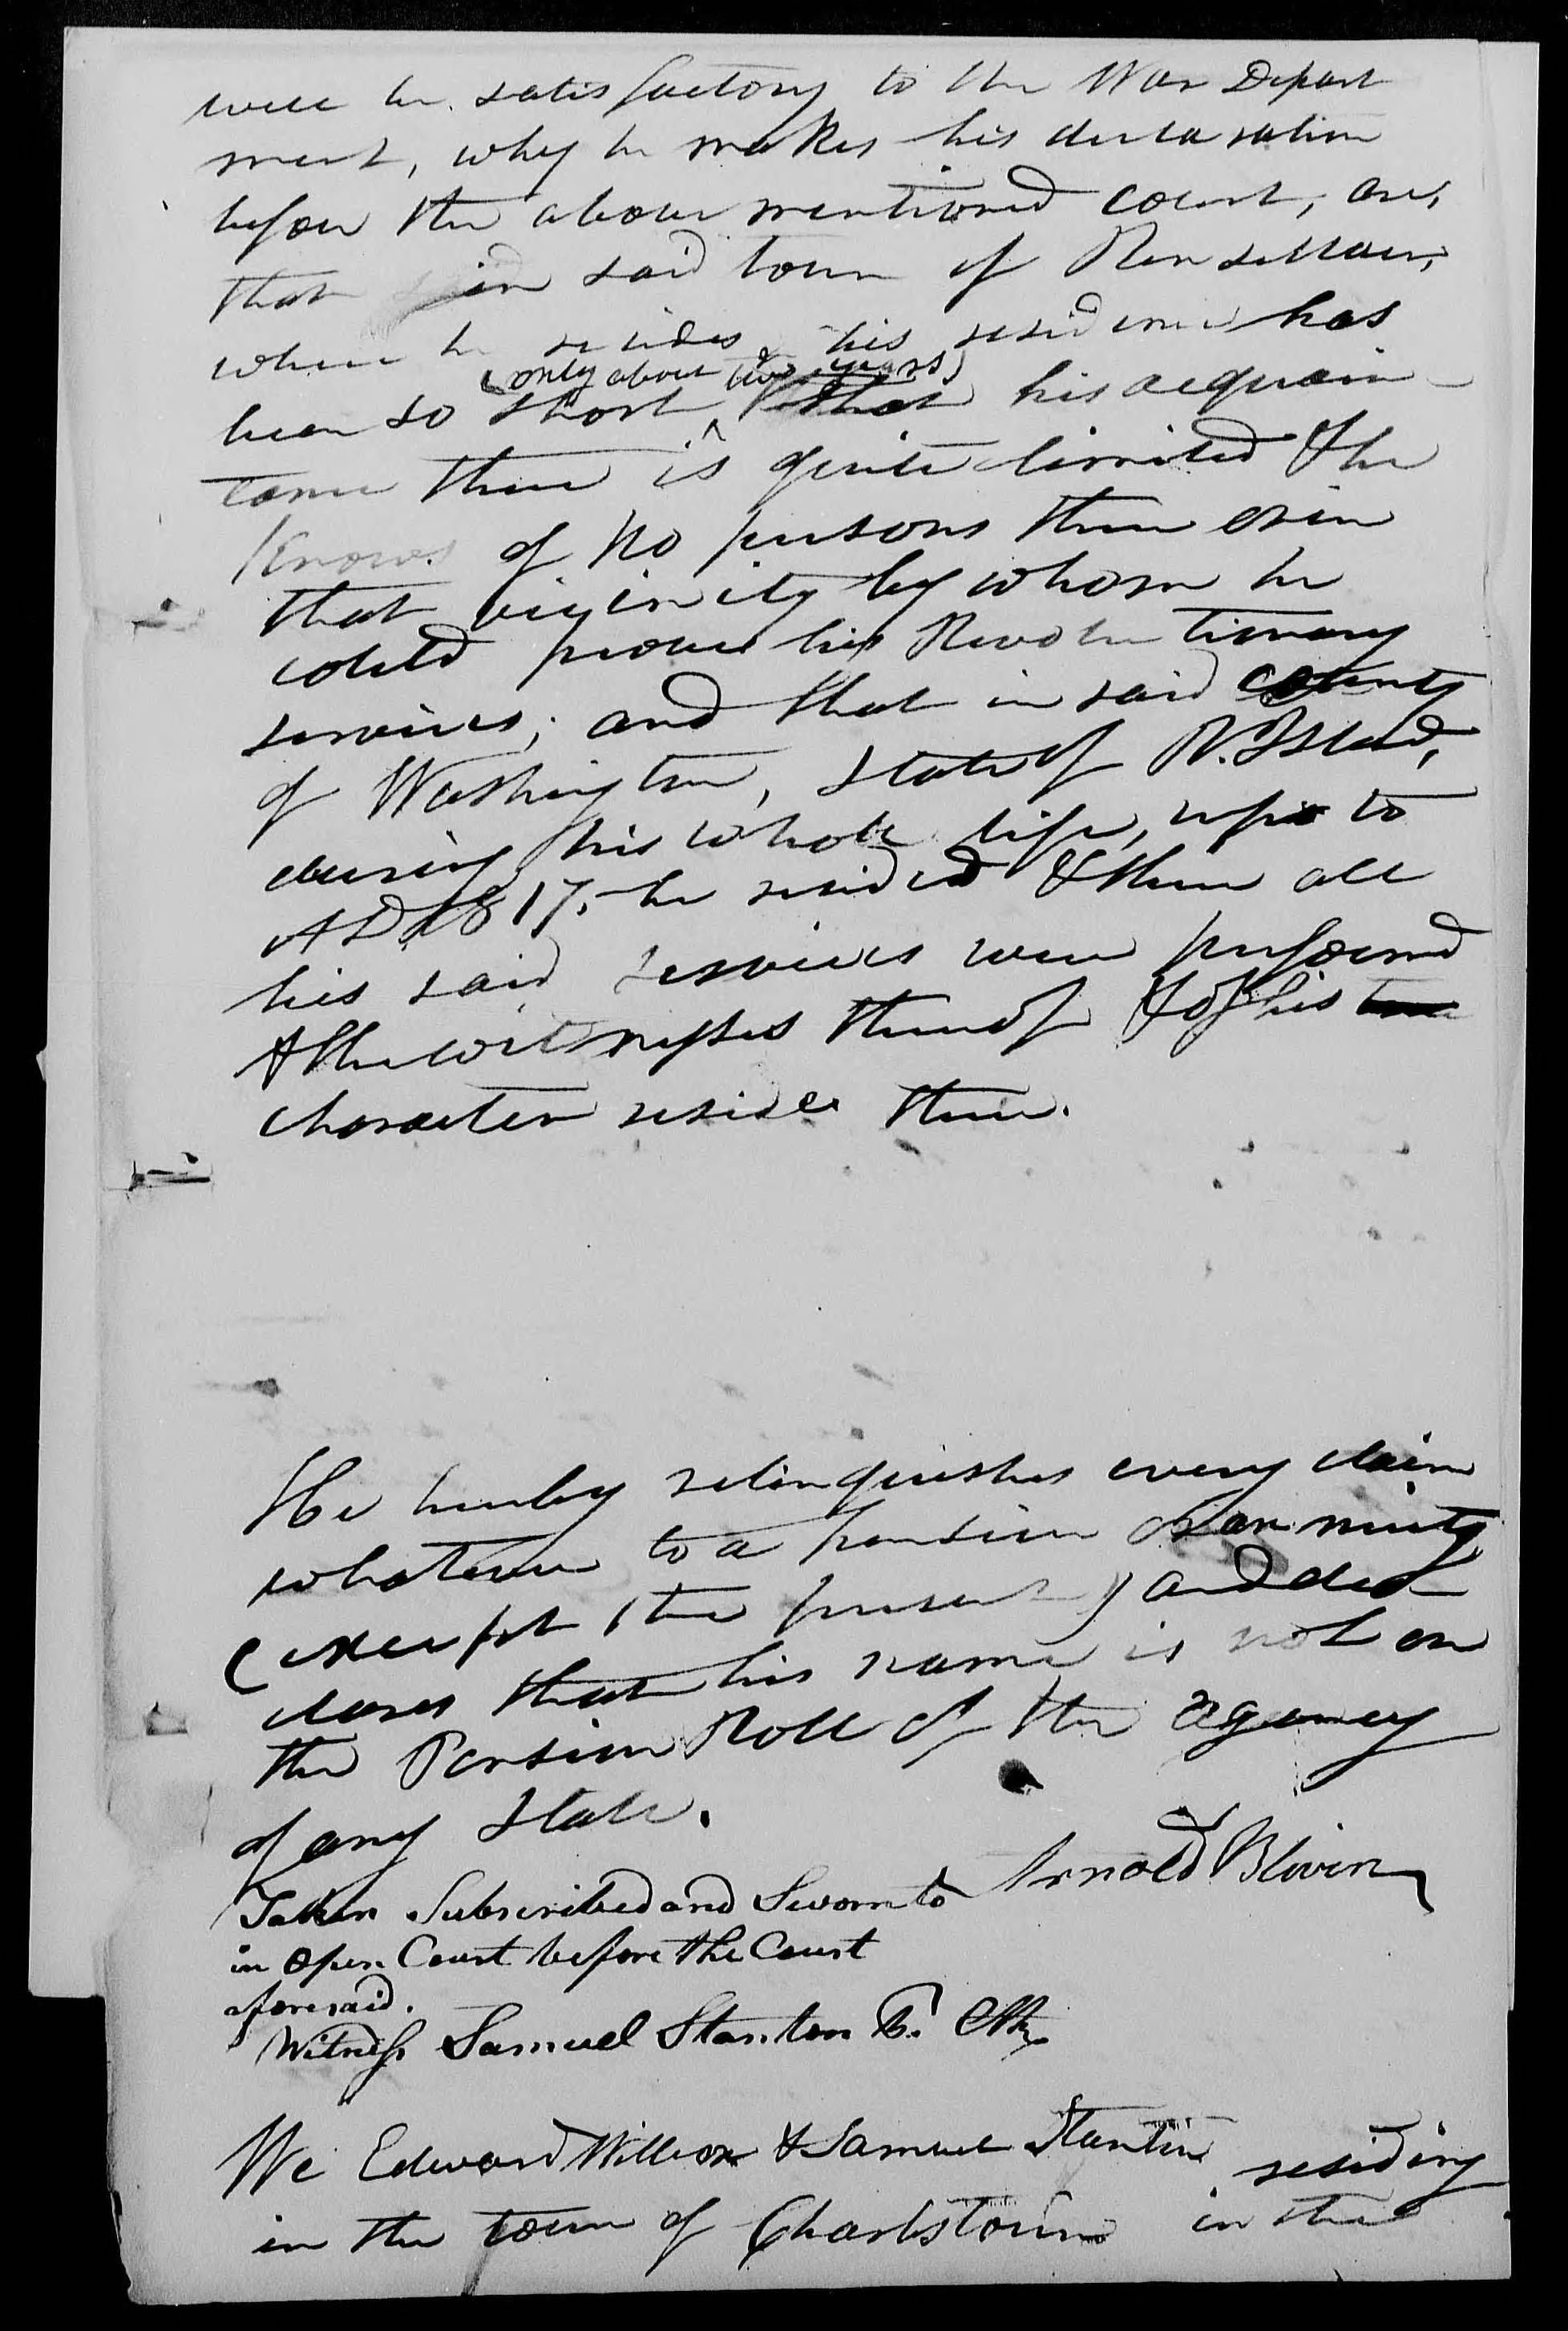 will be satisfactory to the War Depart
ment, why he makes his declaration
before the above mentioned court, are,
that in said town of Rensellaer,
where he resides, his residence has
(only about two years)
been so short that his acquain-
tance there is quite limited & he
knows of no persons there or in
that vicinity by whom he
could prove his Revolutionary
services; and that in said county
of Washington, State of R. Island,
during his whole life, up to
AD 1817, he resided & there all
his said services were performed
& the witnesses thereof & of his
character reside there.
He hereby relinquishes every claim
whatever to a pension or annuity
(except the present) and de
clares that his name is not on
the Pension Roll of the agency
of any State.
Arnold Bliven
Taken Subscribed and Sworn to
in Open Court before the Court
aforesaid.
Witness Samuel Stanton Clk
We Edward Willcox & Samuel Stanton residing
in the town of Charlstown in the